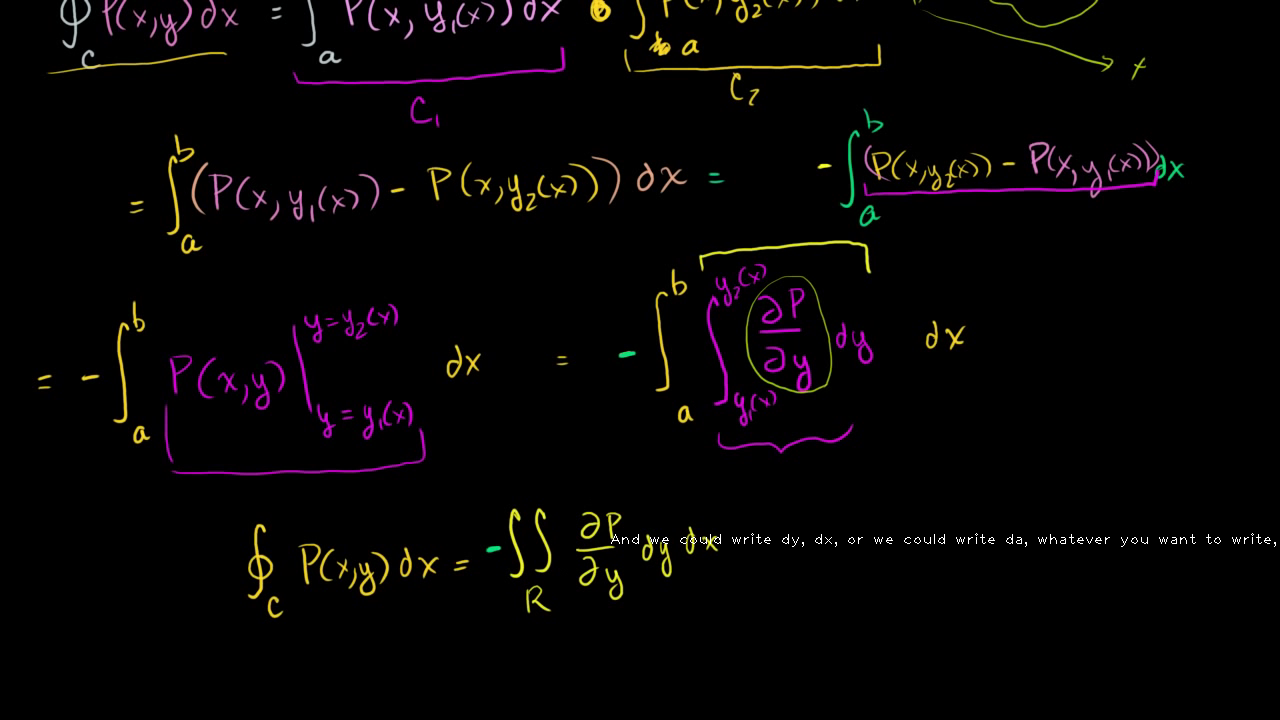 ∮_C P(x,y) dx = ∫_a P(x, y₁(x)) dx ∫_a y₂(x)
C₁ C₂ x
= ∫_a^b (P(x, y₁(x)) - P(x, y₂(x))) dx = - ∫_a^b (P(x, y₂(x)) - P(x, y₁(x))) dx
= - ∫_a^b P(x,y) |_{y = y₁(x)}^{y = y₂(x)} dx = - ∫_a^b ∫_{y₁(x)}^{y₂(x)} ∂P/∂y dy dx
∮_C P(x,y) dx = - ∫∫_R ∂P/∂y dy dx
And we could write dy, dx, or we could write da, whatever you want to write,